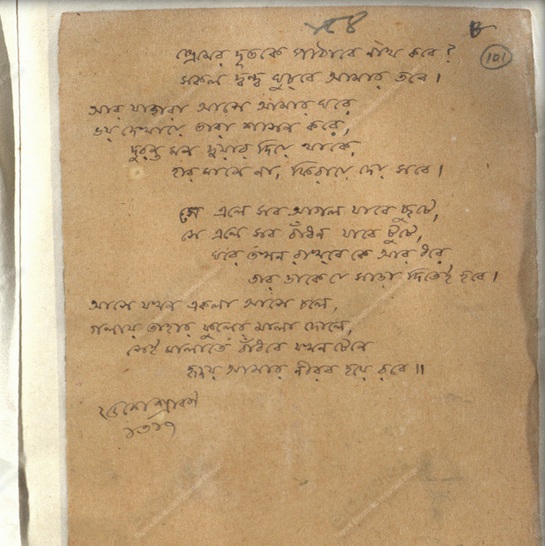 ৫৪
101
প্রেমের দূতকে পাঠাবে নাথ কবে?
সকল দ্বন্দ্ব ঘুচবে আমার তবে।
আর যাহারা আসে আমার ঘরে
ভয় দেখায়ে তারা শাসন করে,
দুরন্ত মন দুয়ার দিয়ে থাকে,
হার মানে না, ফিরায়ে দেয় সবে।
সে এলে সব আগল যাবে ছুটে,
সে এলে সব বাঁধন যাবে টুটে,
ঘরে তখন রাখবে কে আর ধরে,
তার ডাকে যে সাড়া দিতেই হবে।
আসে যখন একলা আসে চলে,
গলায় তাহার ফুলের মালা দোলে,
সেই মালাতে বাঁধবে যখন টেনে
হৃদয় আমার নীরব হয়ে রবে॥
শ্রাবণ
১৩১৭